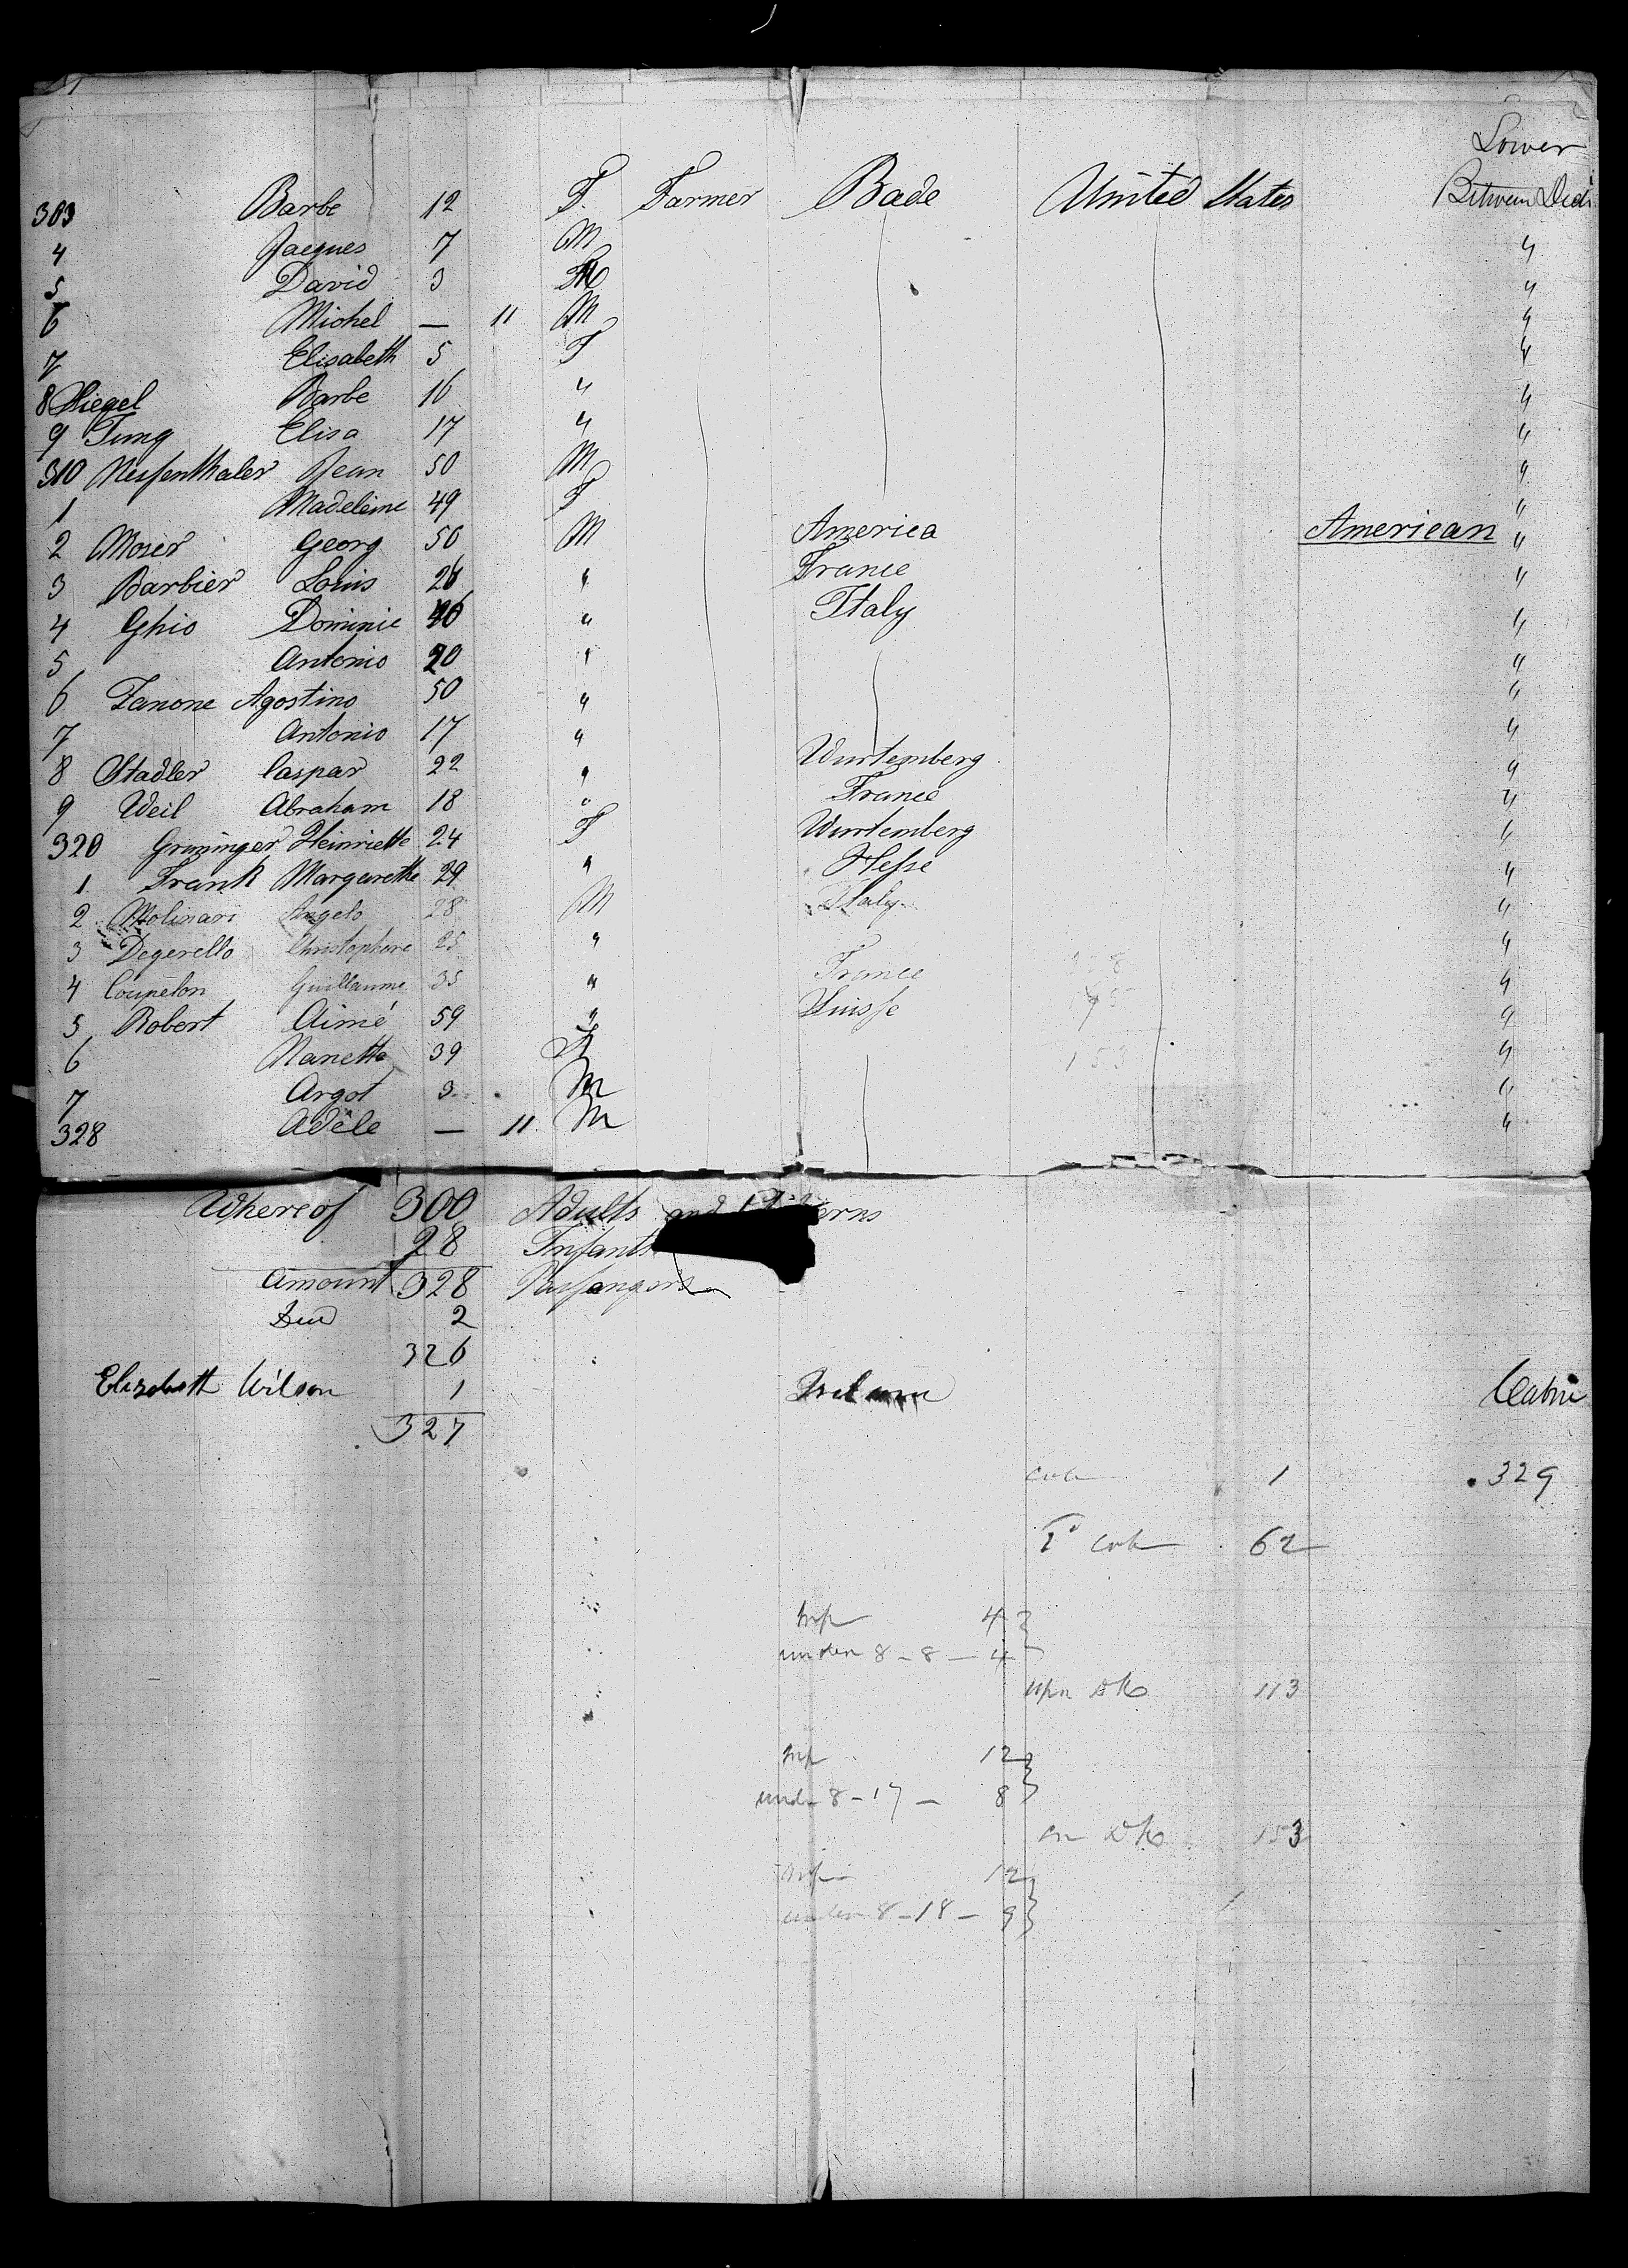 Lower
303 Barbe 12 F. Farmer Bade United States Between Deck
4 Jacques 7 M "
5 David 3 M "
6 Michel — 11 M "
7 Elisabeth 5 F "
8 Siegel Barbe 16 " "
9 Jung Elisa 17 " "
310 Nessenthaler Jean 50 M "
1 Madeleine 49 F "
2 Moser Georg 50 M America American "
3 Barbier Louis 26 " France "
4 Ghio Dominic 40 " Italy "
5 Antonio 20 " "
6 Zanone Agostino 50 " "
7 Antonio 17 " "
8 Stadler Caspar 22 " Wurtemberg "
9 Weil Abraham 18 " France "
320 Gruninger Heinriette 24 F Wurtemberg "
1 Frank Margarethe 29 " Hesse "
2 Molinari Angelo 28 M Italy "
3 Degerello Christophore 25 " "
4 Coupelon Guillaume 35 " France "
5 Robert Aimé 59 " Suisse "
6 Nanette 39 F 153 "
7 Argot 3 M "
328 Adèle — 11 M "
Whereof 300 Adults and
28 Infants
Amount 328 Passengers
Died 2
326
Elizabeth Wilson 1 Cabin
327
Cab 1 329
2d Cab 62
Inf 4
under 8 - 8 - 4
upr Dk 113
Inf 12
under 8 - 17 - 8
Dk 153
Inf 12
under 8 - 18 - 9